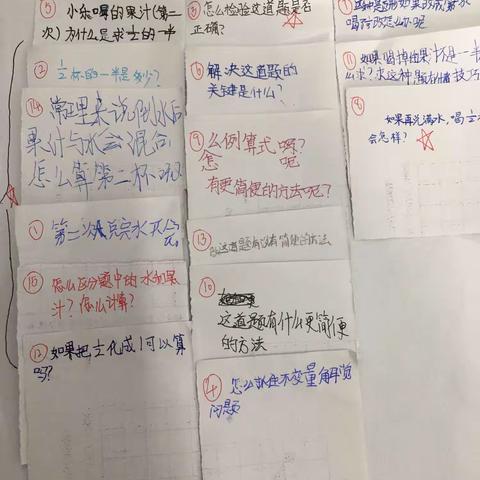 ⑤ 小乐喝的果汁(第二
次)为什么是求½的一半
② ½杯的一半是多少?
⑭ 常理来说倒水后
果汁与水会混合
怎么算第二杯呢
① 第二次
⑮ 怎么区分题中的水和果
汁?怎么计算?
⑫ 如果把½化成1可以算
吗?
③ 怎么检验这道题是否
正确?
⑥ 解决这道题的
关键是什么?
⑨ 怎么例算式呢?
有更简便的方法呢?
⑬ 这道题有没有简便的方法
⑩
这道题有什么更简便
的方法
④ 怎么抓住不变量解决
问题
⑪ 如果喝掉的果汁不是一半
⑧
如果再兑满水,喝
会怎样?